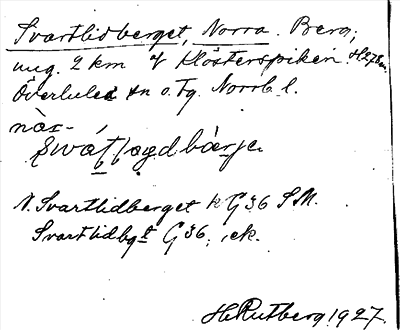 Svartlidberget, Norra. Berg,
ung. 2 km V Klösterspiken.
Överluleå sn o. Tg. Norrb. l.
nòs-
N. Svartlidberget k G36 S.M.
Svartlidbgt G36, ek.
H. Rutberg 1927.